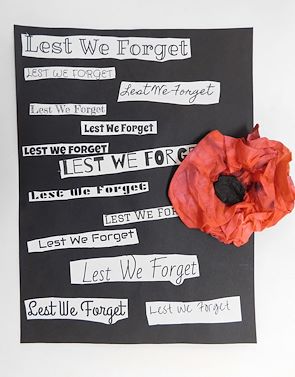 Lest We Forget
LEST WE FORGET
Lest We Forget
Lest We Forget
Lest We Forget
Lest We Forget
LEST WE FORGE
Lest We Forget
LEST WE FOR
Lest We Forget
Lest We Forget
Lest We Forget
Lest We Forget